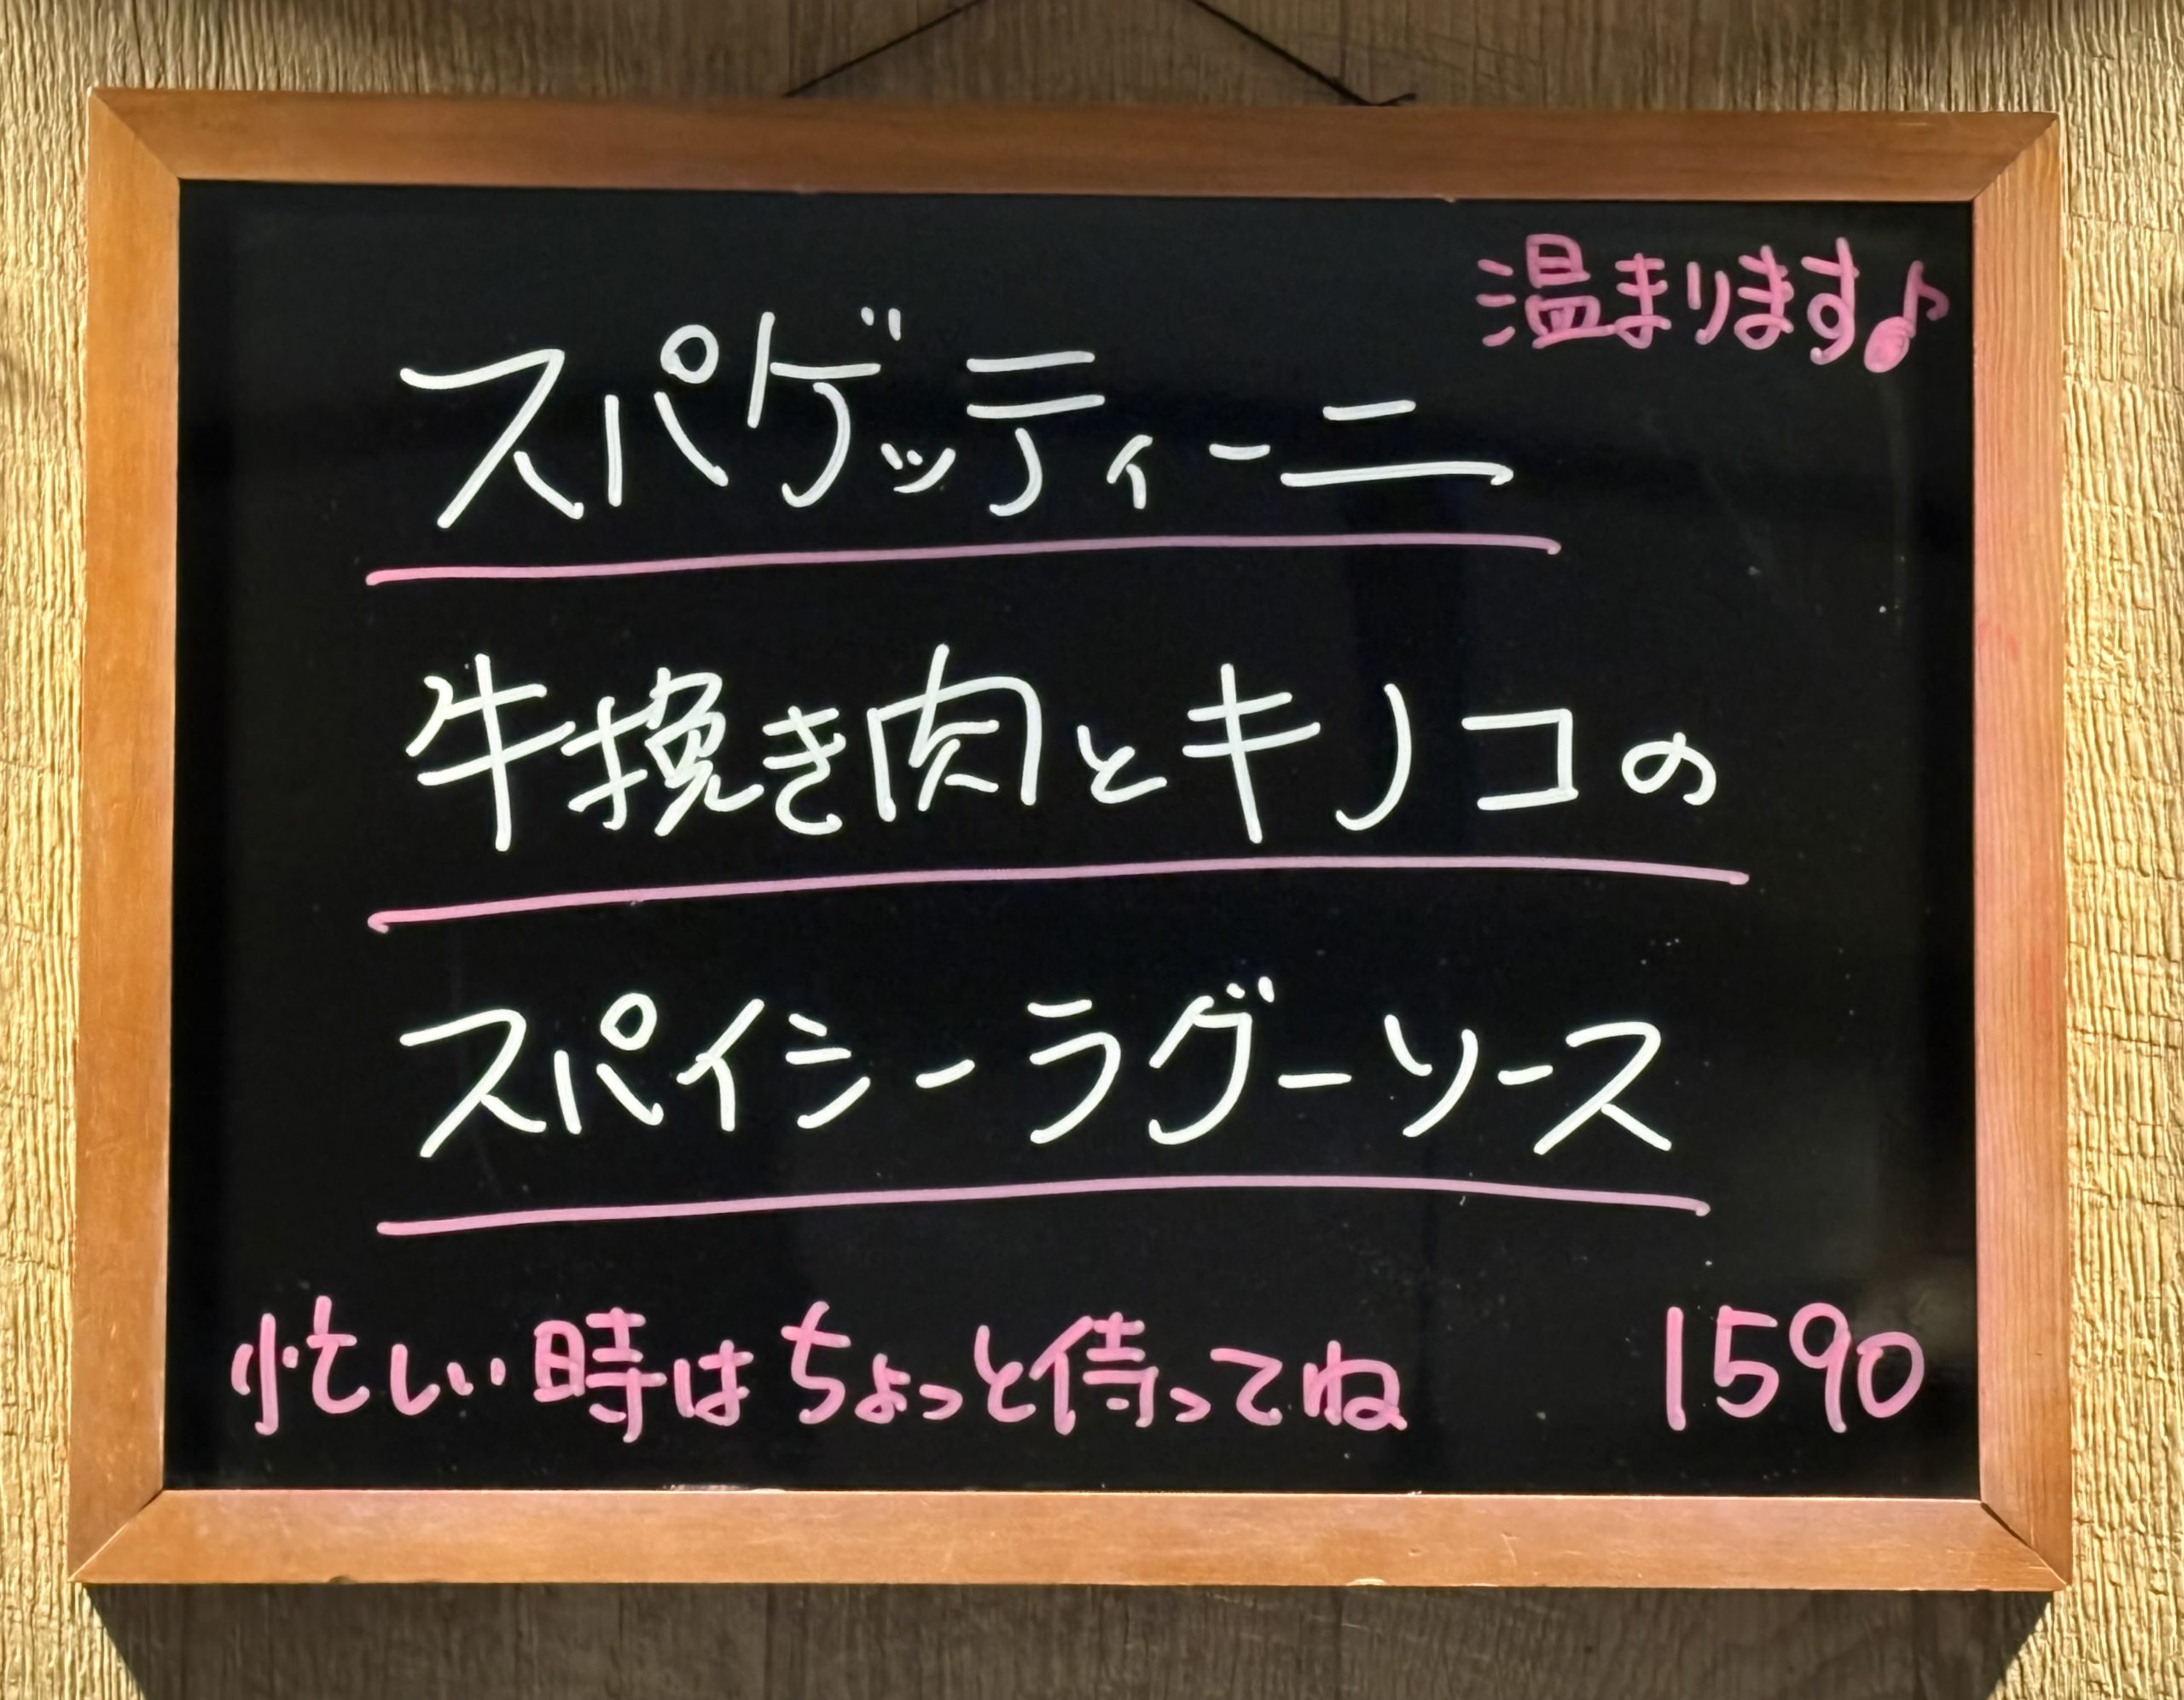 温まります♪
スパゲッティーニ
牛挽き肉とキノコの
スパイシーラグーソース
忙しい時はちょっと待ってね
1590